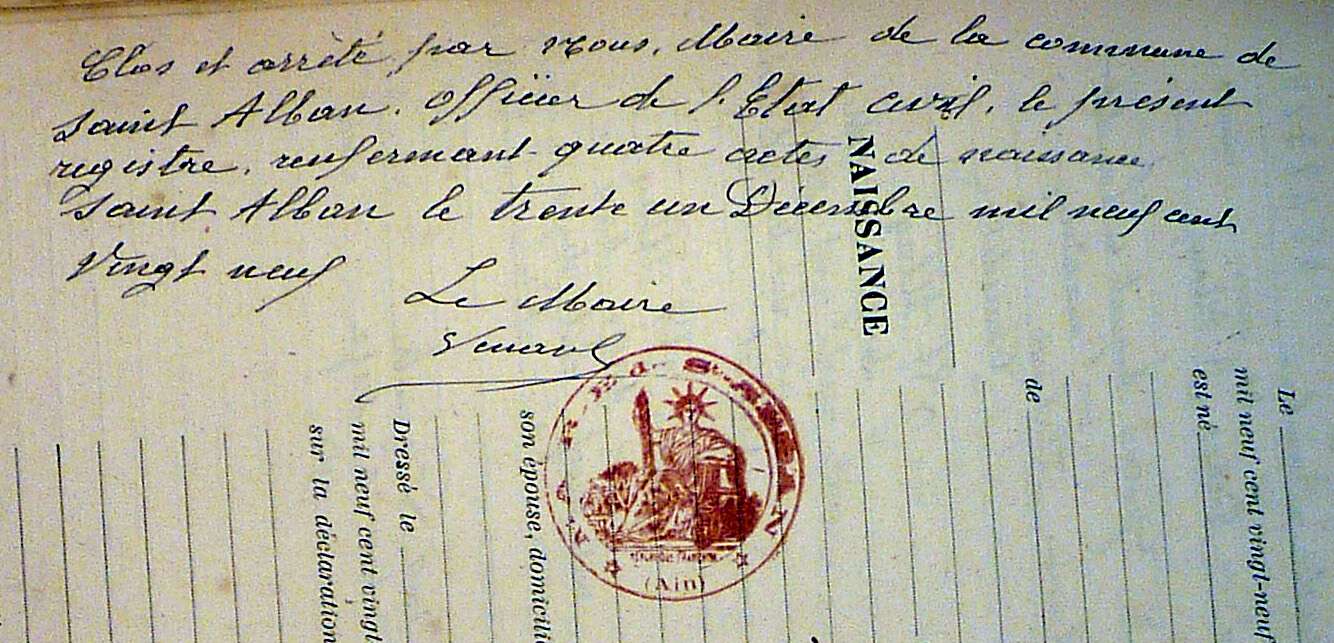 Clos et arrêté par nous, Maire de la commune de
Saint Alban, Officier de l'Etat Civil, le présent
registre, renfermant quatre actes de naissance.
Saint Alban le trente un Décembre mil neuf cent
vingt neuf
Le Maire
NAISSANCE
MAIRIE de St. ALBAN
RÉPUBLIQUE FRANÇAISE
(Ain)
Le
mil neuf cent vingt-neu
est né
de
son épouse, domicili
Dressé le
mil neuf cent vingt
sur la déclaration